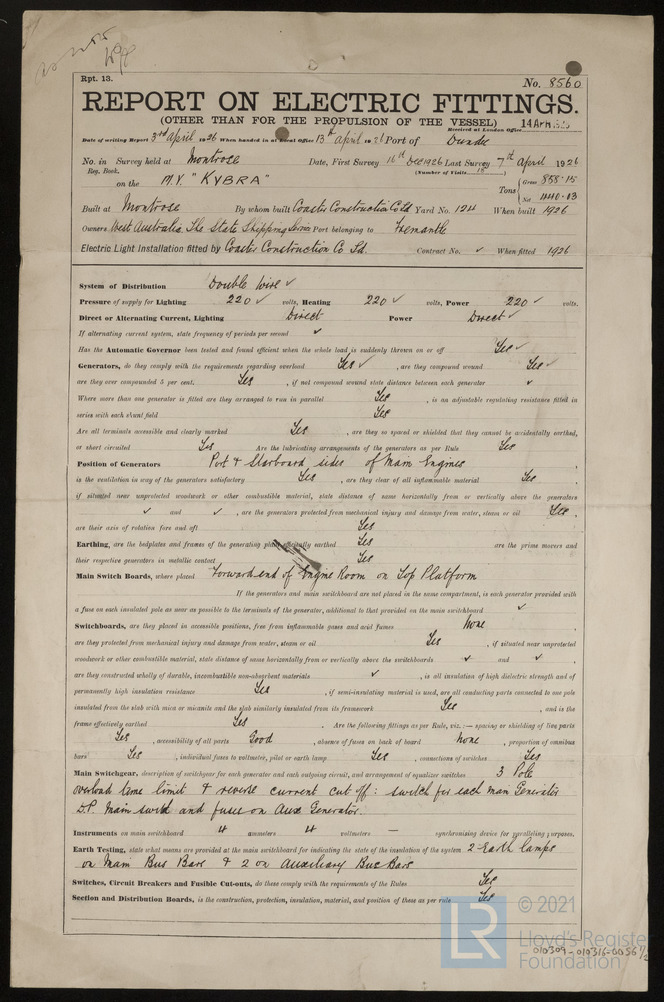 Rpt. 13.
No. 8560
REPORT ON ELECTRIC FITTINGS.
(OTHER THAN FOR THE PROPULSION OF THE VESSEL)
Received at London Office
Date of writing Report 3rd April 1926 When handed in at Local Office 13th April 1926 Port of Dundee
No. in Reg. Book. Survey held at Montrose Date, First Survey 16th Dec 1926 Last Survey 7th April 1926
(Number of Visits 15)
on the M.Y. "KYBRA" Tons { Gross 858.15
Net 440.03
Built at Montrose By whom built Coaster Construction Co Ld Yard No. 124 When built 1926
Owners West Australia. The State Shipping Service Port belonging to Fremantle
Electric Light Installation fitted by Coaster Construction Co Ld. Contract No. ✓ When fitted 1926
System of Distribution Double Wire ✓
Pressure of supply for Lighting 220 ✓ volts, Heating 220 ✓ volts, Power 220 ✓ volts.
Direct or Alternating Current, Lighting Direct Power Direct ✓
If alternating current system, state frequency of periods per second ✓
Has the Automatic Governor been tested and found efficient when the whole load is suddenly thrown on or off Yes ✓
Generators, do they comply with the requirements regarding overload Yes ✓, are they compound wound Yes ✓
are they over compounded 5 per cent. Yes, if not compound wound state distance between each generator ✓
Where more than one generator is fitted are they arranged to run in parallel Yes, is an adjustable regulating resistance fitted in
series with each shunt field Yes
Are all terminals accessible and clearly marked Yes, are they so spaced or shielded that they cannot be accidentally earthed,
or short circuited Yes Are the lubricating arrangements of the generators as per Rule Yes
Position of Generators Port & Starboard sides of Main Engines
is the ventilation in way of the generators satisfactory Yes, are they clear of all inflammable material Yes
if situated near unprotected woodwork or other combustible material, state distance of same horizontally from or vertically above the generators
✓ and ✓, are the generators protected from mechanical injury and damage from water, steam or oil Yes,
are their axis of rotation fore and aft Yes
Earthing, are the bedplates and frames of the generating plant efficiently earthed Yes are the prime movers and
their respective generators in metallic contact Yes
Main Switch Boards, where placed Forward end of Engine Room on Top Platform
If the generators and main switchboard are not placed in the same compartment, is each generator provided with
a fuse on each insulated pole as near as possible to the terminals of the generator, additional to that provided on the main switchboard ✓
Switchboards, are they placed in accessible positions, free from inflammable gases and acid fumes None
are they protected from mechanical injury and damage from water, steam or oil Yes, if situated near unprotected
woodwork or other combustible material, state distance of same horizontally from or vertically above the switchboards ✓ and ✓,
are they constructed wholly of durable, incombustible non-absorbent materials ✓, is all insulation of high dielectric strength and of
permanently high insulation resistance Yes, if semi-insulating material is used, are all conducting parts connected to one pole
insulated from the slab with mica or micanite and the slab similarly insulated from its framework Yes, and is the
frame effectively earthed Yes. Are the following fittings as per Rule, viz.:— spacing or shielding of live parts
Yes, accessibility of all parts Good, absence of fuses on back of board None, proportion of omnibus
bars Yes, individual fuses to voltmeter, pilot or earth lamp Yes, connections of switches Yes
Main Switchgear, description of switchgear for each generator and each outgoing circuit, and arrangement of equalizer switches 3 Pole
overload time limit & reverse current cut off: switch for each main Generator
D.P. Main switch and fuses on Aux Generator.
Instruments on main switchboard 4 ammeters 4 voltmeters — synchronizing device for paralleling purposes.
Earth Testing, state what means are provided at the main switchboard for indicating the state of the insulation of the system 2 Earth lamps
on Main Bus Bars & 2 on Auxiliary Bus Bars
Switches, Circuit Breakers and Fusible Cut-outs, do these comply with the requirements of the Rules Yes
Section and Distribution Boards, is the construction, protection, insulation, material, and position of these as per rule Yes
LR © 2021
Lloyd's Register
Foundation
010309-010316-0056 1/2